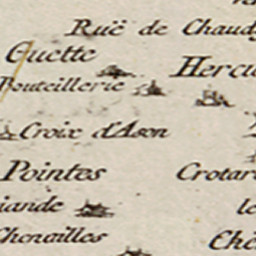 Ruë de Chaud
Guette
Hercu
Bouteillerie
Croix d'Ason
Pointes
Crotar
iande
le
Chenailles
Chê